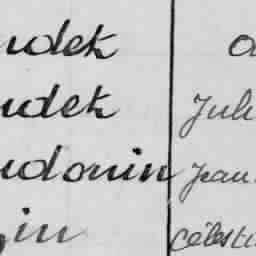 udek
udek Juli
udonin Jean
in Célesti